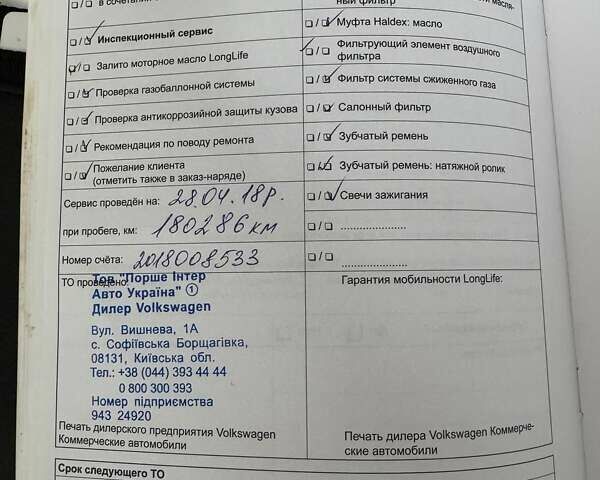 в сочетании
☐/☐ Инспекционный сервис
☐/☐ Залито моторное масло LongLife
☐/☐ Проверка газобаллонной системы
☐/☐ Проверка антикоррозийной защиты кузова
☐/☐ Рекомендация по поводу ремонта
☐/☐ Пожелание клиента
(отметить также в заказ-наряде)
Сервис проведён на: 28.04.18р.
при пробеге, км: 180286 км
Номер счёта: 2018008533
ТО проведено
Тов "Порше Інтер
Авто Україна" ①
Дилер Volkswagen
Вул. Вишнева, 1А
с. Софіївська Борщагівка,
08131, Київська обл.
Тел.: +38 (044) 393 44 44
0 800 300 393
Номер підприємства
943 24920
Печать дилерского предприятия Volkswagen
Коммерческие автомобили
ный фильтр
☐/☐ Муфта Haldex: масло
☐/☐ Фильтрующий элемент воздушного
фильтра
☐/☐ Фильтр системы сжиженного газа
☐/☐ Салонный фильтр
☐/☐ Зубчатый ремень
☐/☐ Зубчатый ремень: натяжной ролик
☐/☐ Свечи зажигания
☐/☐ ....................
☐/☐ ....................
Гарантия мобильности LongLife:
Печать дилера Volkswagen Коммерче-
ские автомобили
Срок следующего ТО